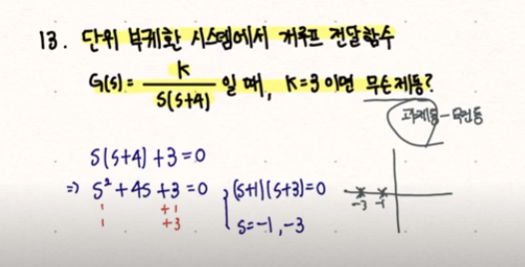 13. 단위 부궤환 시스템에서 개루프 전달함수
G(s) = K / s(s+4) 일 때, K=3 이면 무슨제동?
과제동 - 무진동
s(s+4) +3 = 0
⇒ s² + 4s + 3 = 0 , (s+1)(s+3) = 0
1 +1
1 +3
s = -1, -3
-3 -1